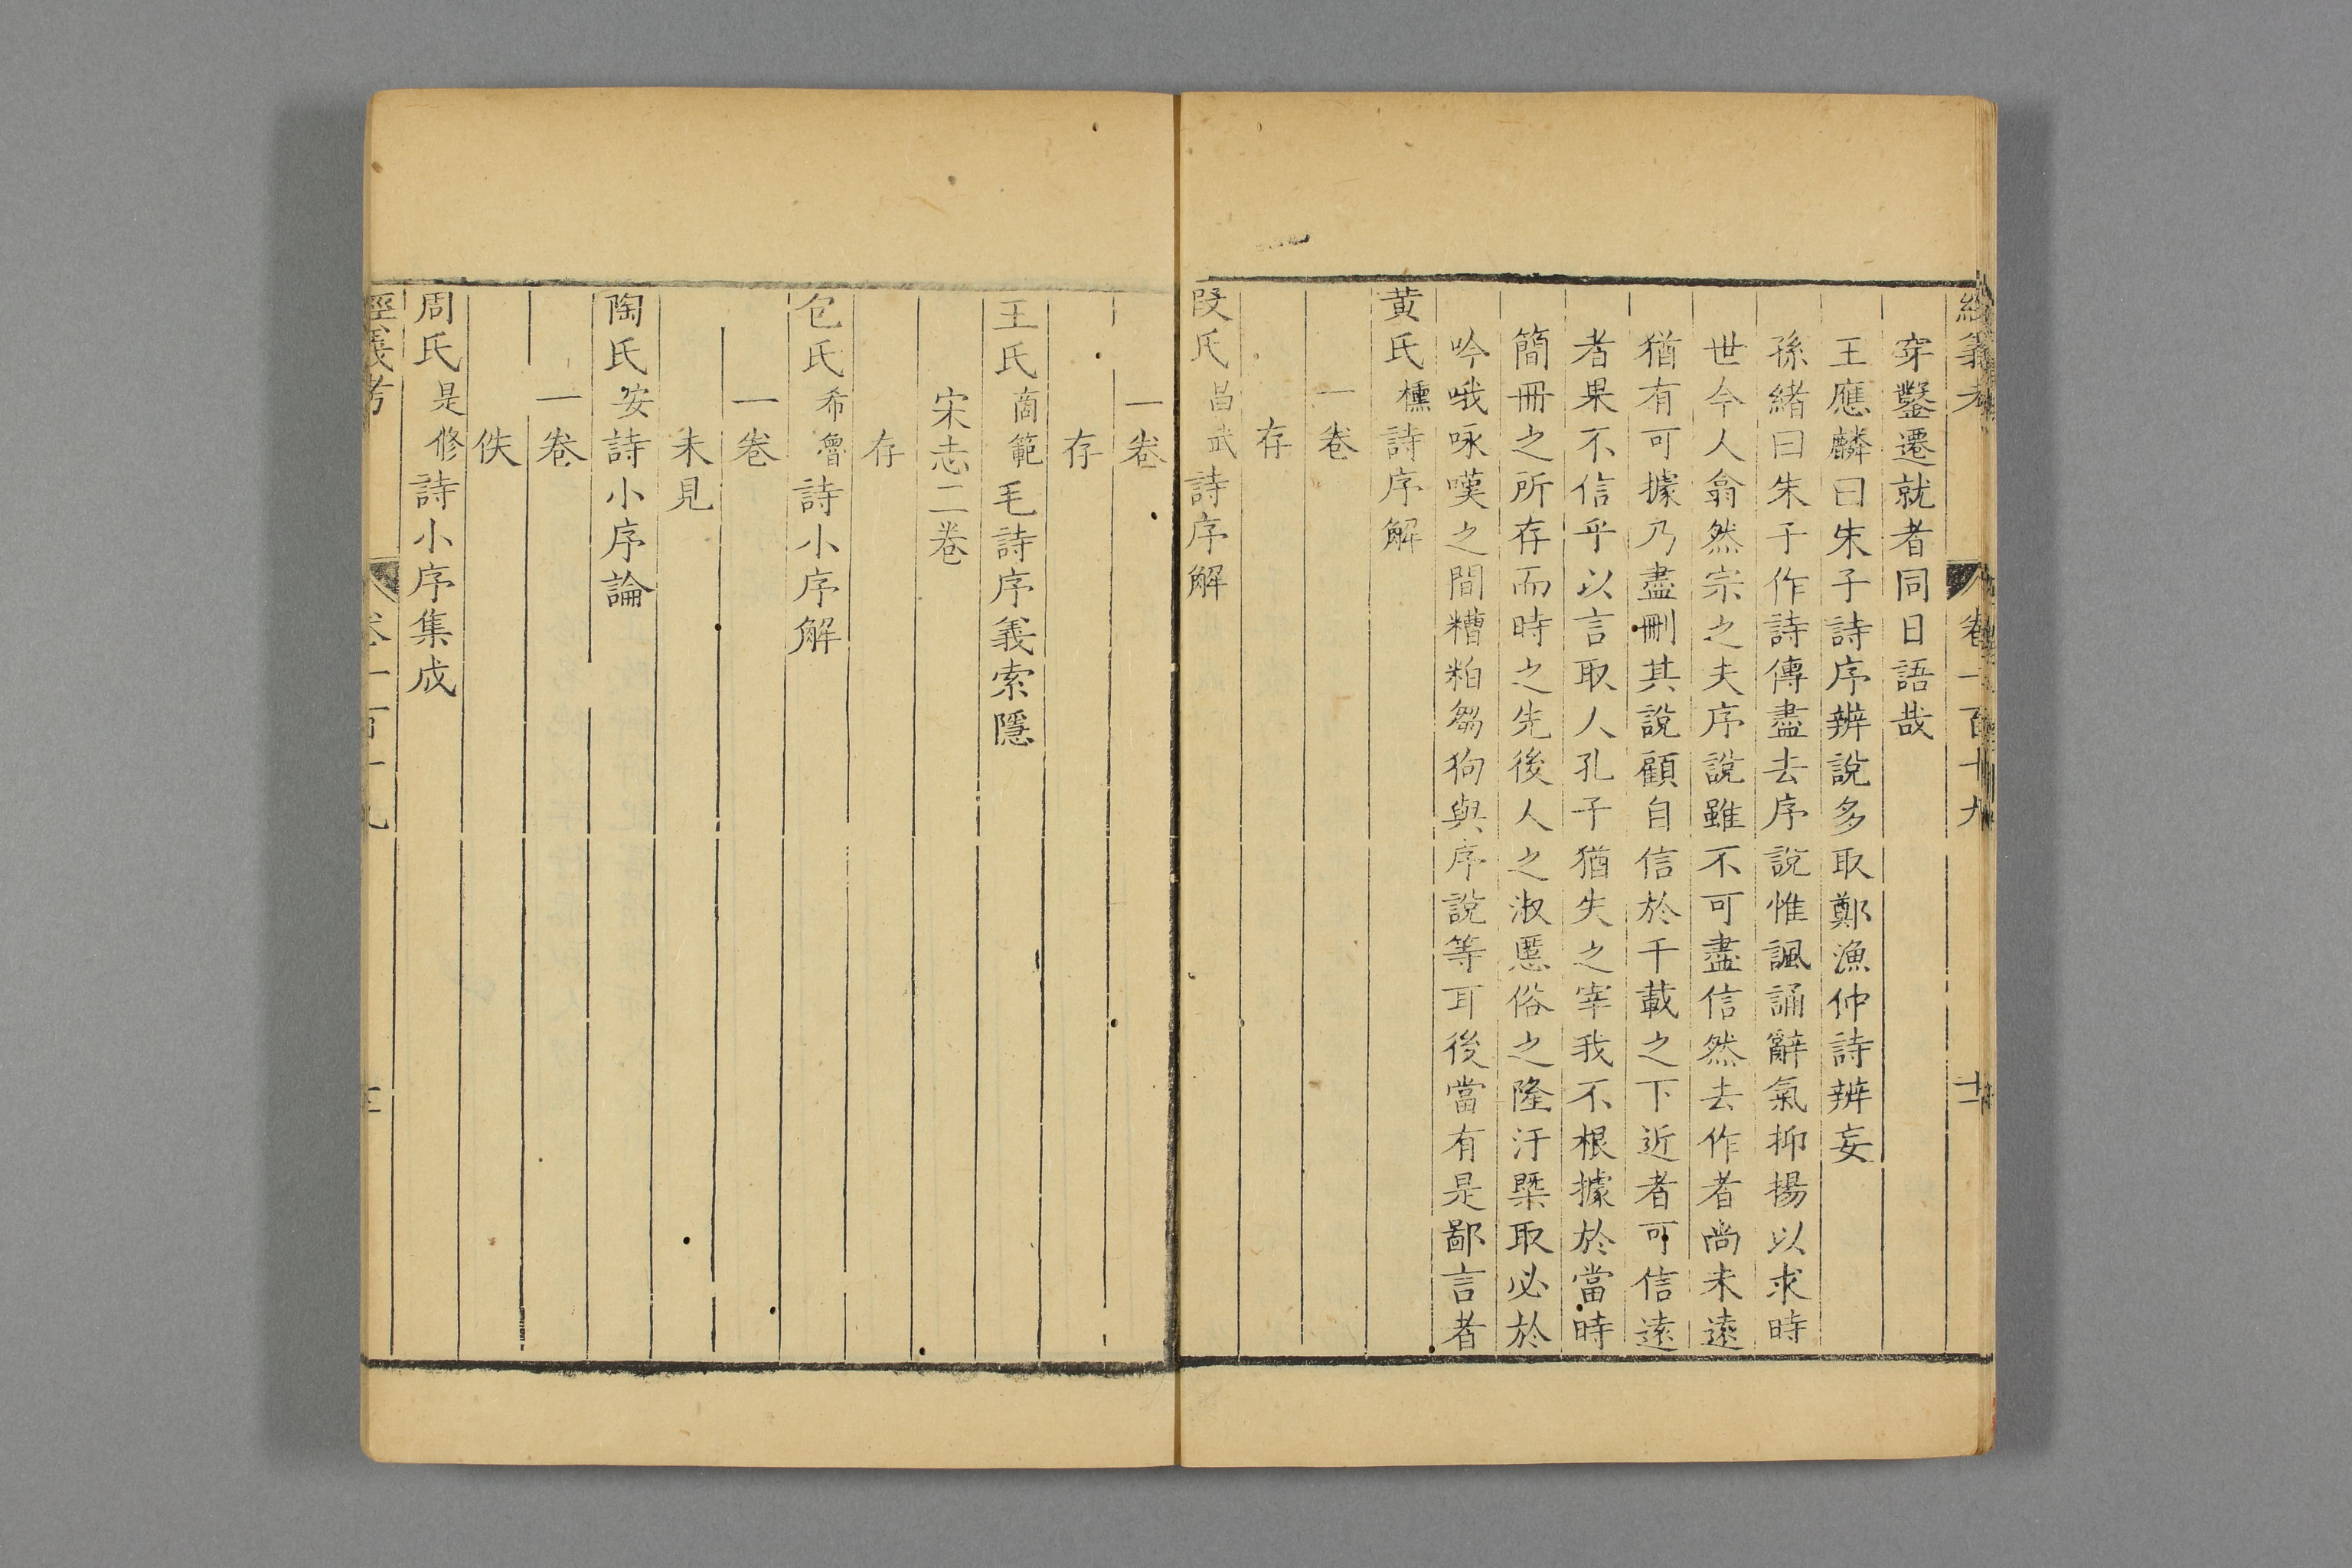 經義考 卷一百十九 十一
穿鑿遷就者同日語哉
王應麟曰朱子詩序辨說多取鄭漁仲詩辨妄
孫緒曰朱子作詩傳盡去序說惟諷誦辭氣抑揚以求時
世今人翕然宗之夫序說雖不可盡信然去作者尚未遠
猶有可據乃盡刪其說顧自信於千載之下近者可信遠
者果不信乎以言取人孔子猶失之宰我不根據於當時
簡冊之所存而時之先後人之淑慝俗之隆汙槩取必於
吟哦咏嘆之間糟粕芻狗與序說等耳後當有是鄙言者
黃氏櫄詩序解
一卷
存
段氏昌武詩序解
一卷
存
王氏商範毛詩序義索隱
宋志二卷
存
包氏希魯詩小序解
一卷
未見
陶氏安詩小序論
一卷
佚
周氏是修詩小序集成
經義考 卷一百十九